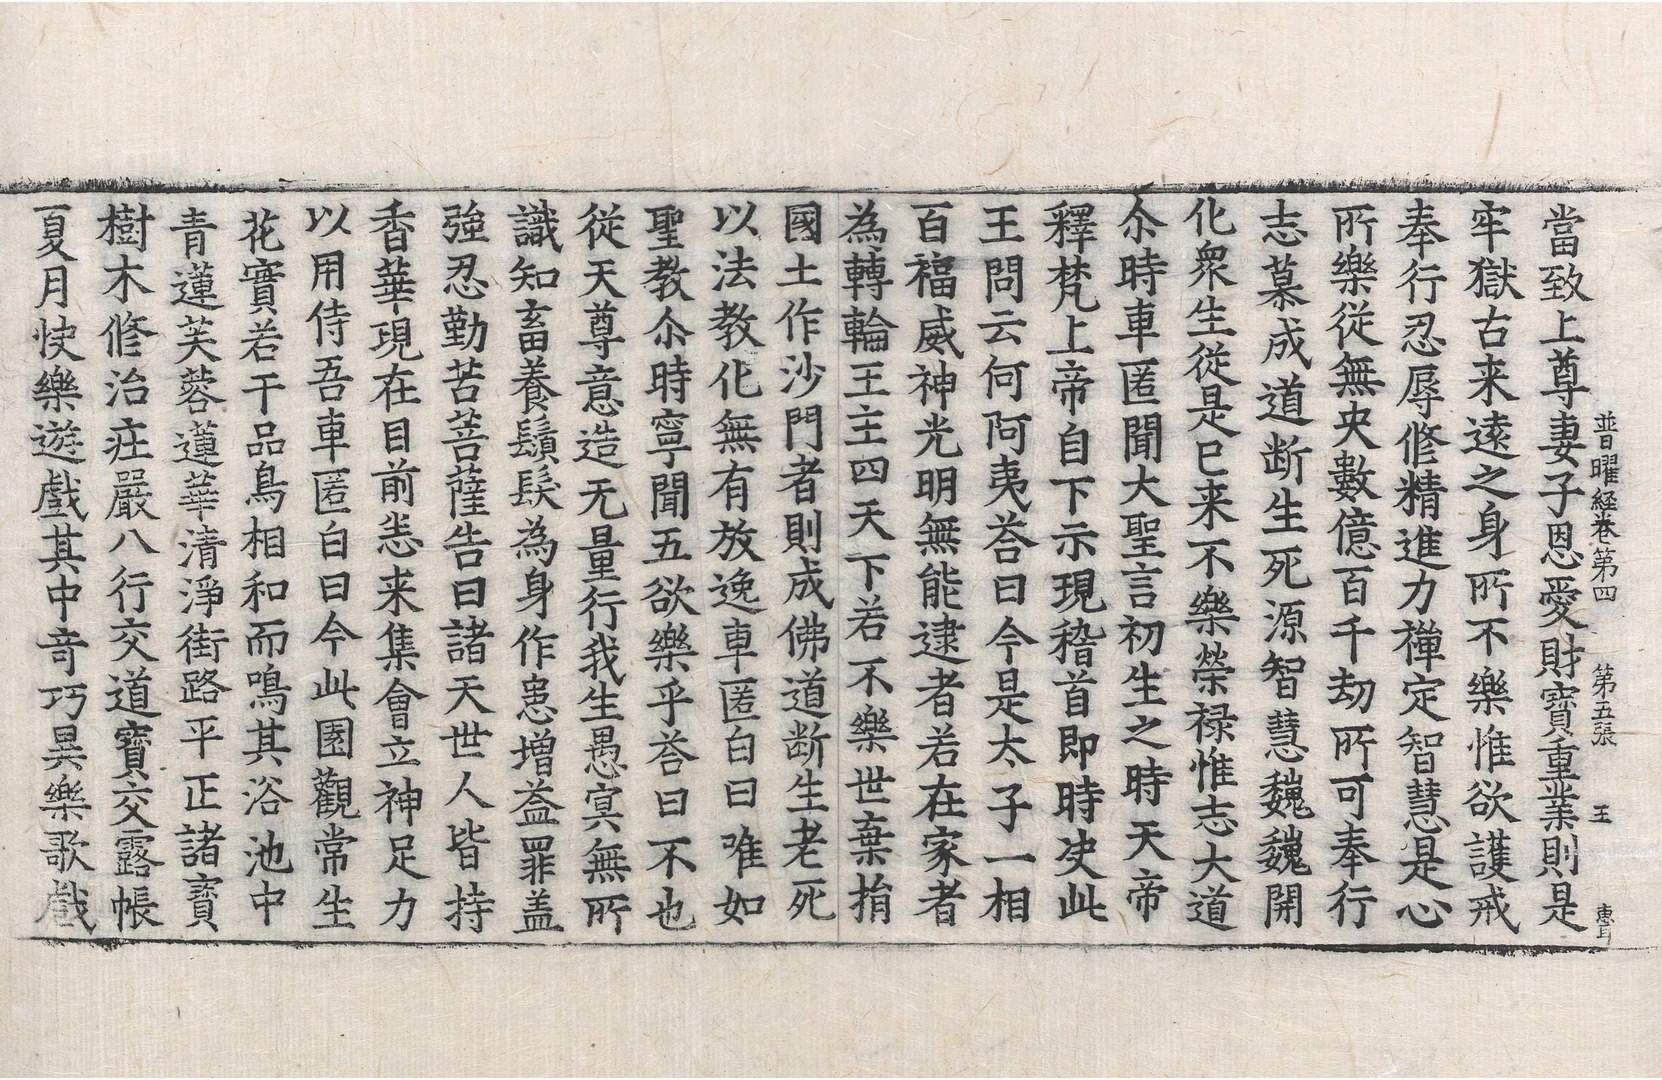 普曜経卷第四 第五張 王
當致上尊妻子恩愛財寶重業則是
牢獄古来遠之身所不樂惟欲護戒
奉行忍辱修精進力禪定智慧是心
所樂從無央數億百千劫所可奉行
志慕成道断生死源智慧魏魏開
化衆生從是已来不樂榮禄惟志大道
尒時車匿聞大聖言初生之時天帝
釋梵上帝自下示現稽首即時決此
王問云何阿夷荅曰今是太子一相
百福威神光明無能逮者若在家者
為轉輪王主四天下若不樂世棄捐
國土作沙門者則成佛道断生老死
以法教化無有放逸車匿白曰唯如
聖教尒時寧聞五欲樂乎荅曰不也
從天尊意造无量行我生愚冥無所
識知畜養鬚髮為身作患增益罪蓋
強忍勤苦菩薩告曰諸天世人皆持
香華現在目前恙来集會立神足力
以用侍吾車匿白曰今此園觀常生
花實若干品鳥相和而鳴其浴池中
青蓮芙蓉蓮華清淨街路平正諸寶
樹木修治庄嚴八行交道寶交露帳
夏月快樂遊戲其中奇巧異樂歌戲